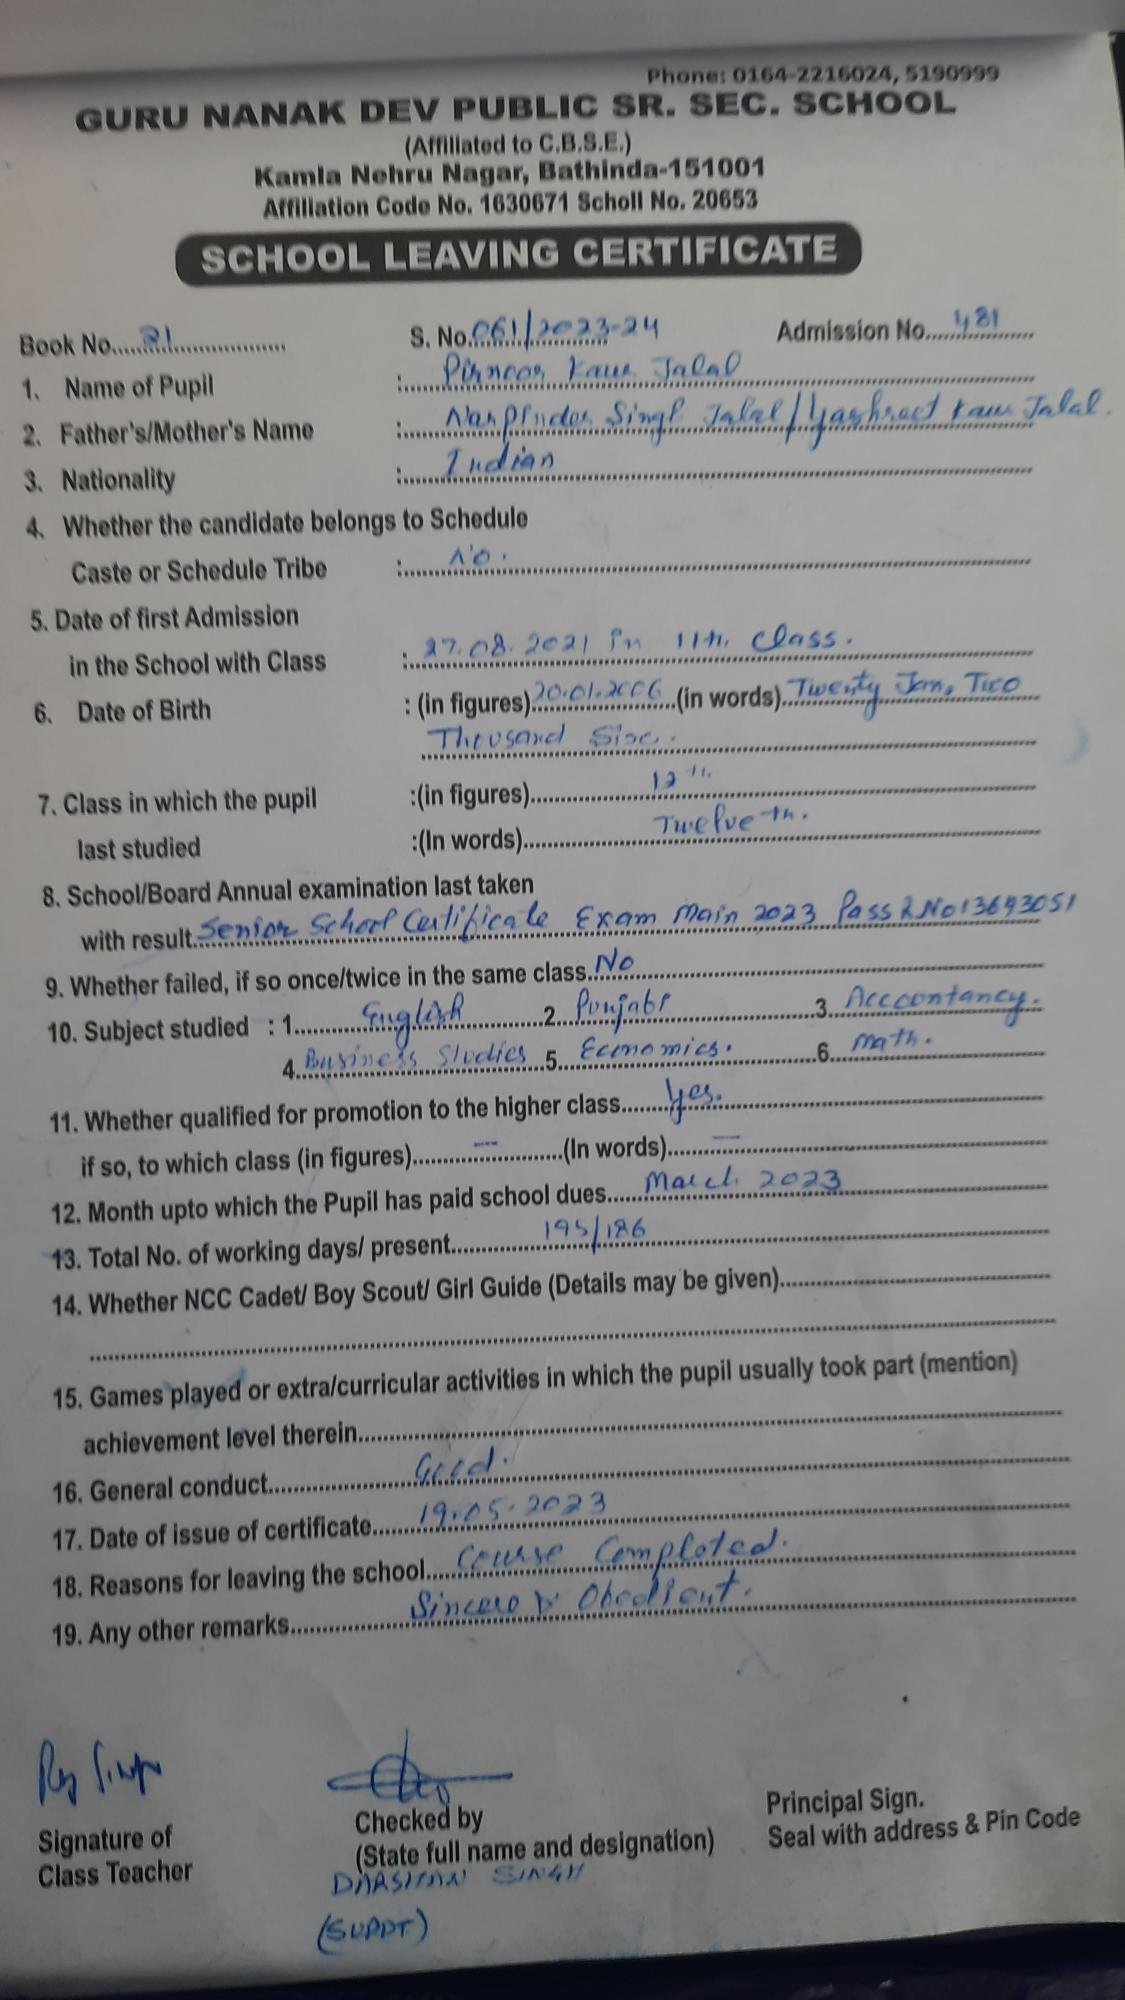 Phone: 0164-2216024, 5190999
GURU NANAK DEV PUBLIC SR. SEC. SCHOOL
(Affiliated to C.B.S.E.)
Kamla Nehru Nagar, Bathinda-151001
Affiliation Code No. 1630671 Scholl No. 20653
SCHOOL LEAVING CERTIFICATE
Book No. 21 S. No. 061/2023-24 Admission No. 481
1. Name of Pupil : Kaur Jalal
2. Father's/Mother's Name : Singh Jalal / Kaur Jalal.
3. Nationality : Indian
4. Whether the candidate belongs to Schedule
Caste or Schedule Tribe : No.
5. Date of first Admission
in the School with Class : 27.08.2021 in 11th class.
6. Date of Birth : (in figures) 20.01.2006 (in words) Twenty Jan, Two
Thousand Six.
7. Class in which the pupil :(in figures) 12th
last studied :(In words) Twelveth.
8. School/Board Annual examination last taken
with result. Senior School Certificate Exam Main 2023 Pass R.No 13693051
9. Whether failed, if so once/twice in the same class. No
10. Subject studied : 1. English 2. Punjabi 3. Accountancy.
4. Business Studies 5. Economics. 6. Math.
11. Whether qualified for promotion to the higher class. Yes.
if so, to which class (in figures) — (In words) —
12. Month upto which the Pupil has paid school dues. March 2023
13. Total No. of working days/ present. 195/186
14. Whether NCC Cadet/ Boy Scout/ Girl Guide (Details may be given)
15. Games played or extra/curricular activities in which the pupil usually took part (mention)
achievement level therein
16. General conduct. Good.
17. Date of issue of certificate. 19.05.2023
18. Reasons for leaving the school. Course Completed.
19. Any other remarks. Sincere & Obedient.
Signature of Class Teacher
Checked by
(State full name and designation)
DARSHAN SINGH
(SUPDT)
Principal Sign.
Seal with address & Pin Code